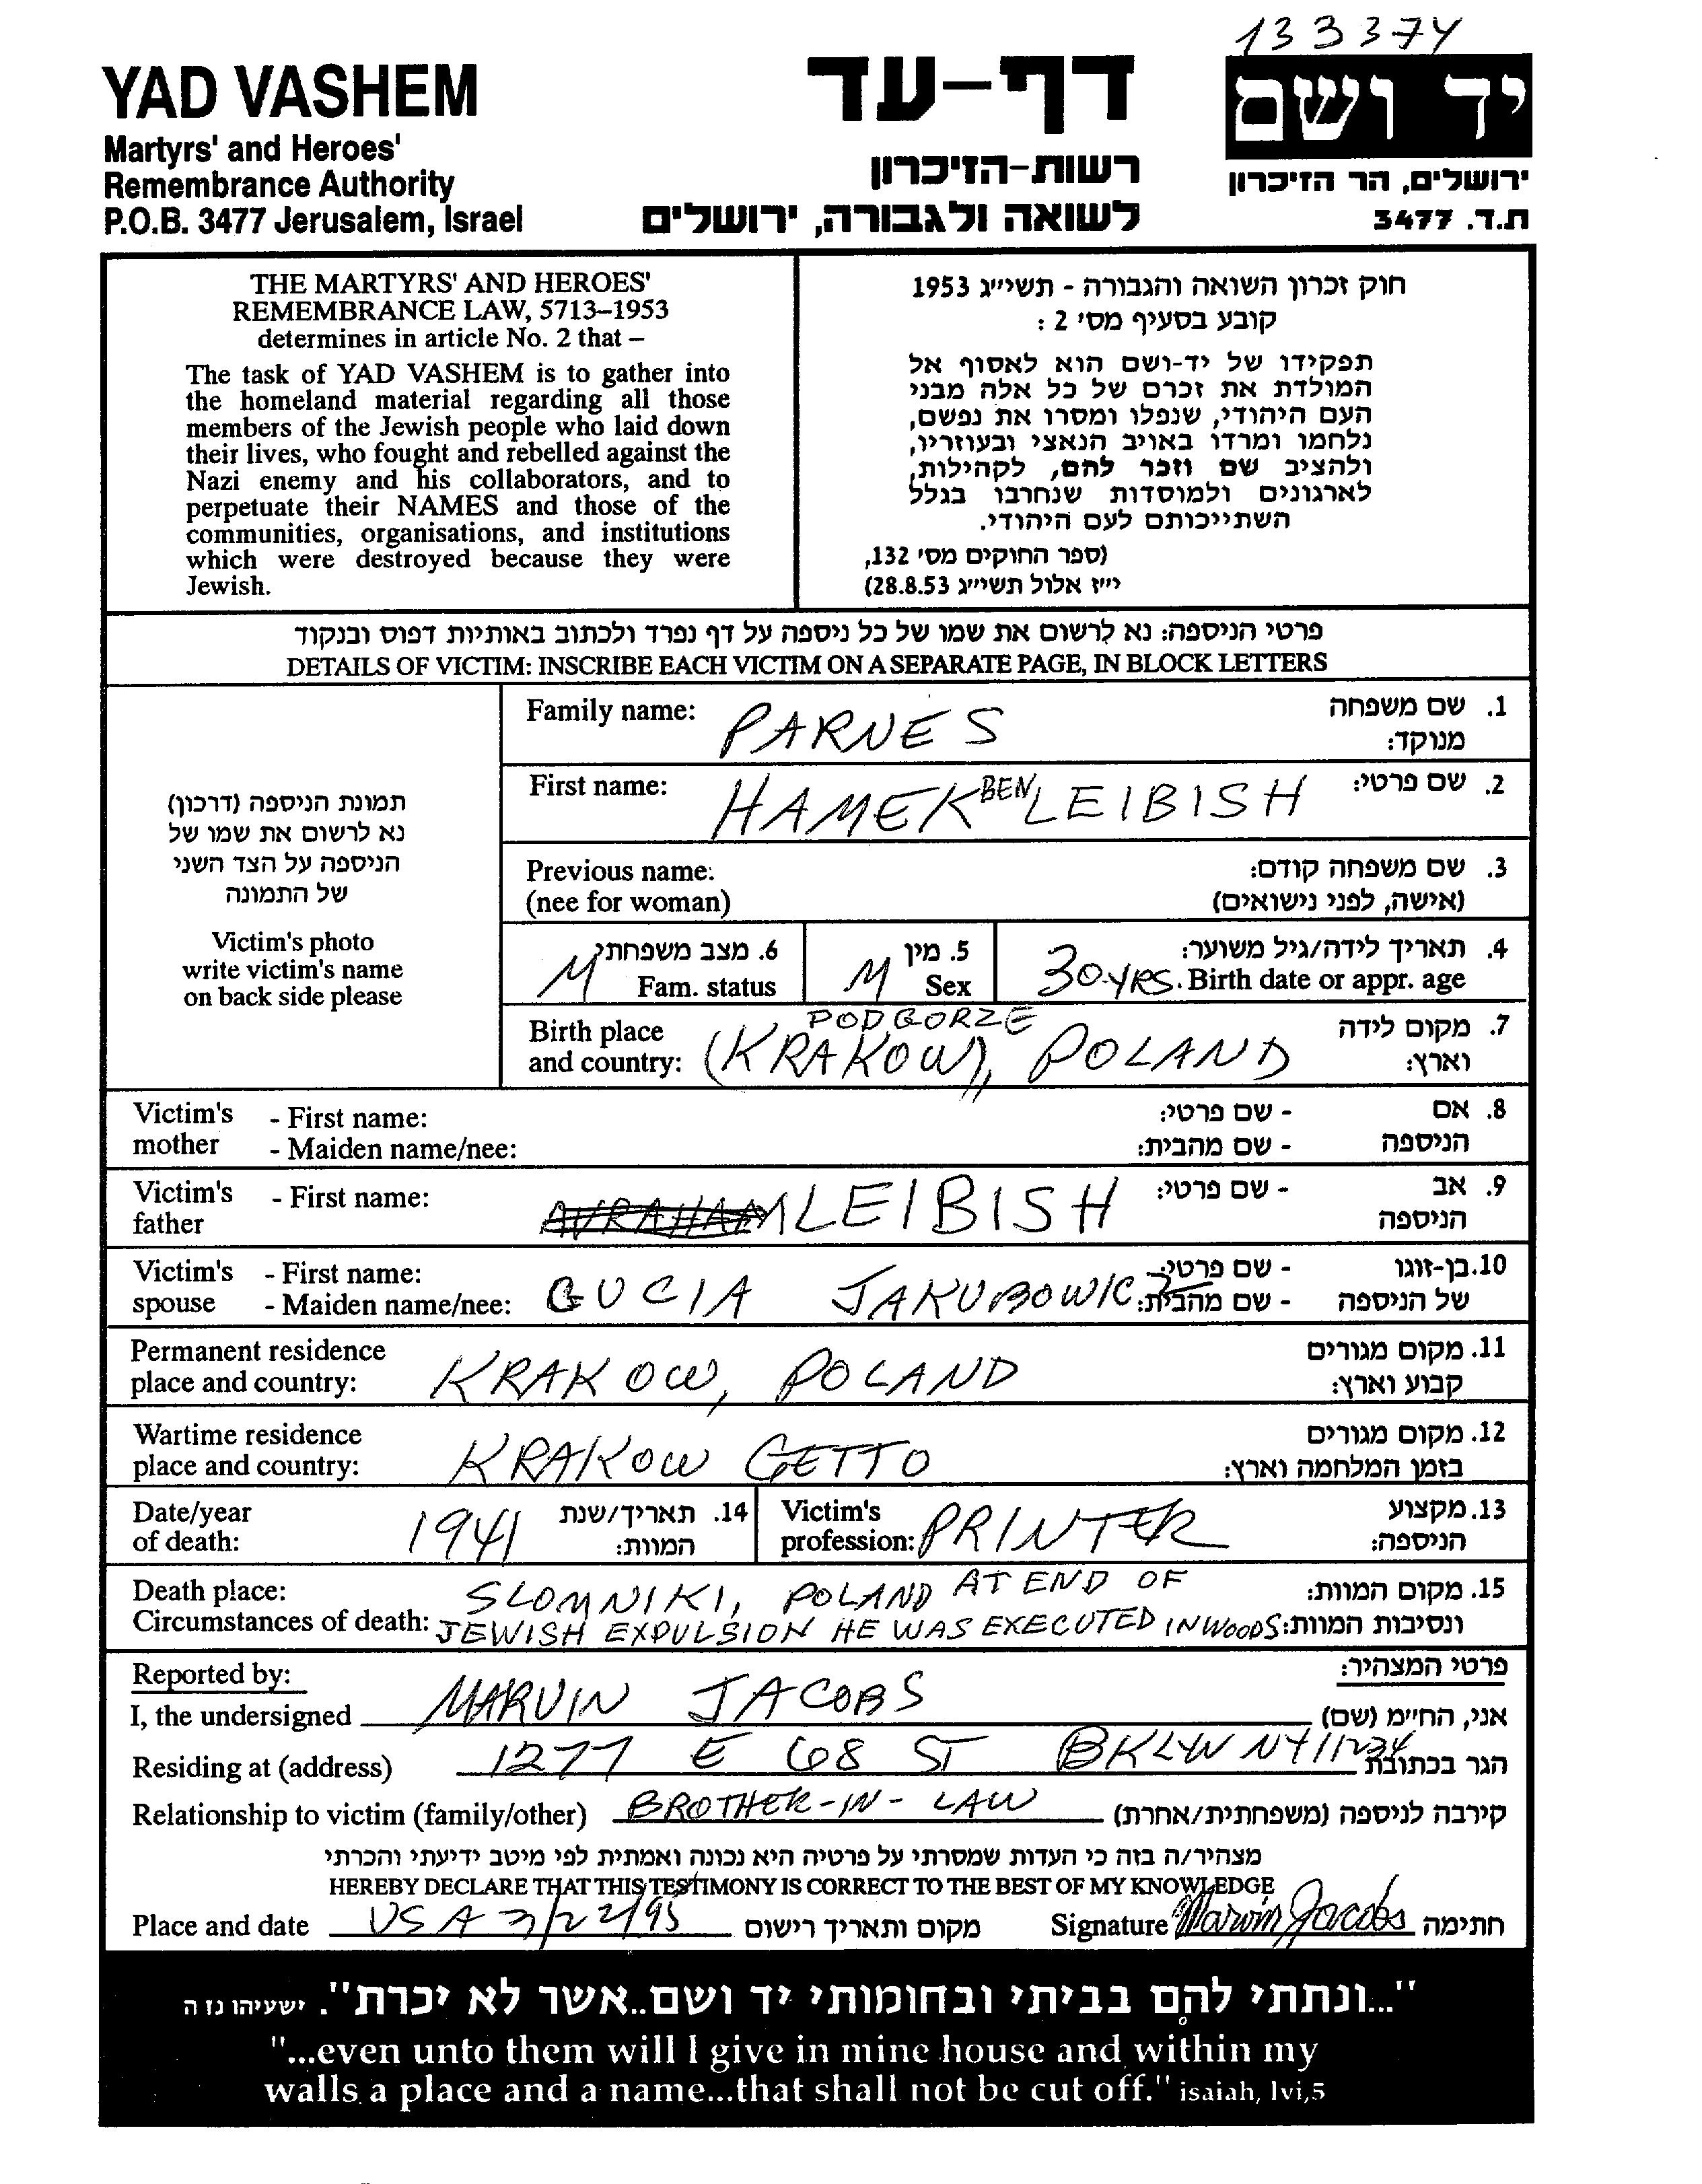 133374
YAD VASHEM
Martyrs' and Heroes'
Remembrance Authority
P.O.B. 3477 Jerusalem, Israel
דף-עד
רשות-הזיכרון
לשואה ולגבורה, ירושלים
יד ושם
ירושלים, הר הזיכרון
ת.ד. 3477
THE MARTYRS' AND HEROES'
REMEMBRANCE LAW, 5713–1953
determines in article No. 2 that –
The task of YAD VASHEM is to gather into
the homeland material regarding all those
members of the Jewish people who laid down
their lives, who fought and rebelled against the
Nazi enemy and his collaborators, and to
perpetuate their NAMES and those of the
communities, organisations, and institutions
which were destroyed because they were
Jewish.
חוק זכרון השואה והגבורה - תשי״ג 1953
קובע בסעיף מס' 2 :
תפקידו של יד-ושם הוא לאסוף אל
המולדת את זכרם של כל אלה מבני
העם היהודי, שנפלו ומסרו את נפשם,
נלחמו ומרדו באויב הנאצי ובעוזריו,
ולהציב שם וזכר להם, לקהילות,
לארגונים ולמוסדות שנחרבו בגלל
השתייכותם לעם היהודי.
(ספר החוקים מס' 132,
י״ז אלול תשי״ג 28.8.53)
פרטי הניספה: נא לרשום את שמו של כל ניספה על דף נפרד ולכתוב באותיות דפוס ובנקוד
DETAILS OF VICTIM: INSCRIBE EACH VICTIM ON A SEPARATE PAGE, IN BLOCK LETTERS
תמונת הניספה (דרכון)
נא לרשום את שמו של
הניספה על הצד השני
של התמונה
Victim's photo
write victim's name
on back side please
Family name: PARNES 1. שם משפחה
מנוקד:
First name: HAMEK BEN LEIBISH 2. שם פרטי:
Previous name: 3. שם משפחה קודם:
(nee for woman) (אישה, לפני נישואים)
M 6. מצב משפחתי
Fam. status
M 5. מין
Sex
30 YRS. 4. תאריך לידה/גיל משוער:
Birth date or appr. age
Birth place PODGORZE 7. מקום לידה
and country: (KRAKOW), POLAND וארץ:
Victim's - First name: - שם פרטי: 8. אם
mother - Maiden name/nee: - שם מהבית: הניספה
Victim's - First name: AVRAHAM LEIBISH - שם פרטי: 9. אב
father הניספה
Victim's - First name: - שם פרטי: 10. בן-זוגו
spouse - Maiden name/nee: GUCIA JAKUBOWICZ - שם מהבית: של הניספה
Permanent residence 11. מקום מגורים
place and country: KRAKOW, POLAND קבוע וארץ:
Wartime residence 12. מקום מגורים
place and country: KRAKOW GETTO בזמן המלחמה וארץ:
Date/year 14. תאריך/שנת
of death: 1941 המוות:
Victim's 13. מקצוע
profession: PRINTER הניספה:
Death place: SLOMNIKI, POLAND AT END OF 15. מקום המוות:
Circumstances of death: JEWISH EXPULSION HE WAS EXECUTED IN WOODS ונסיבות המוות:
Reported by: פרטי המצהיר:
I, the undersigned MARVIN JACOBS אני, החי״מ (שם)
Residing at (address) 1277 E 68 ST BKLYN NY 11234 הגר בכתובת
Relationship to victim (family/other) BROTHER-IN-LAW קירבה לניספה (משפחתית/אחרת)
מצהיר/ה בזה כי העדות שמסרתי על פרטיה היא נכונה ואמתית לפי מיטב ידיעתי והכרתי
HEREBY DECLARE THAT THIS TESTIMONY IS CORRECT TO THE BEST OF MY KNOWLEDGE
Place and date USA 3/22/95 מקום ותאריך רישום Signature Marvin Jacobs חתימה
"...ונתתי להם בביתי ובחומותי יד ושם..אשר לא יכרת". ישעיהו נו ה
"...even unto them will I give in mine house and within my
walls a place and a name...that shall not be cut off." isaiah, lvi,5